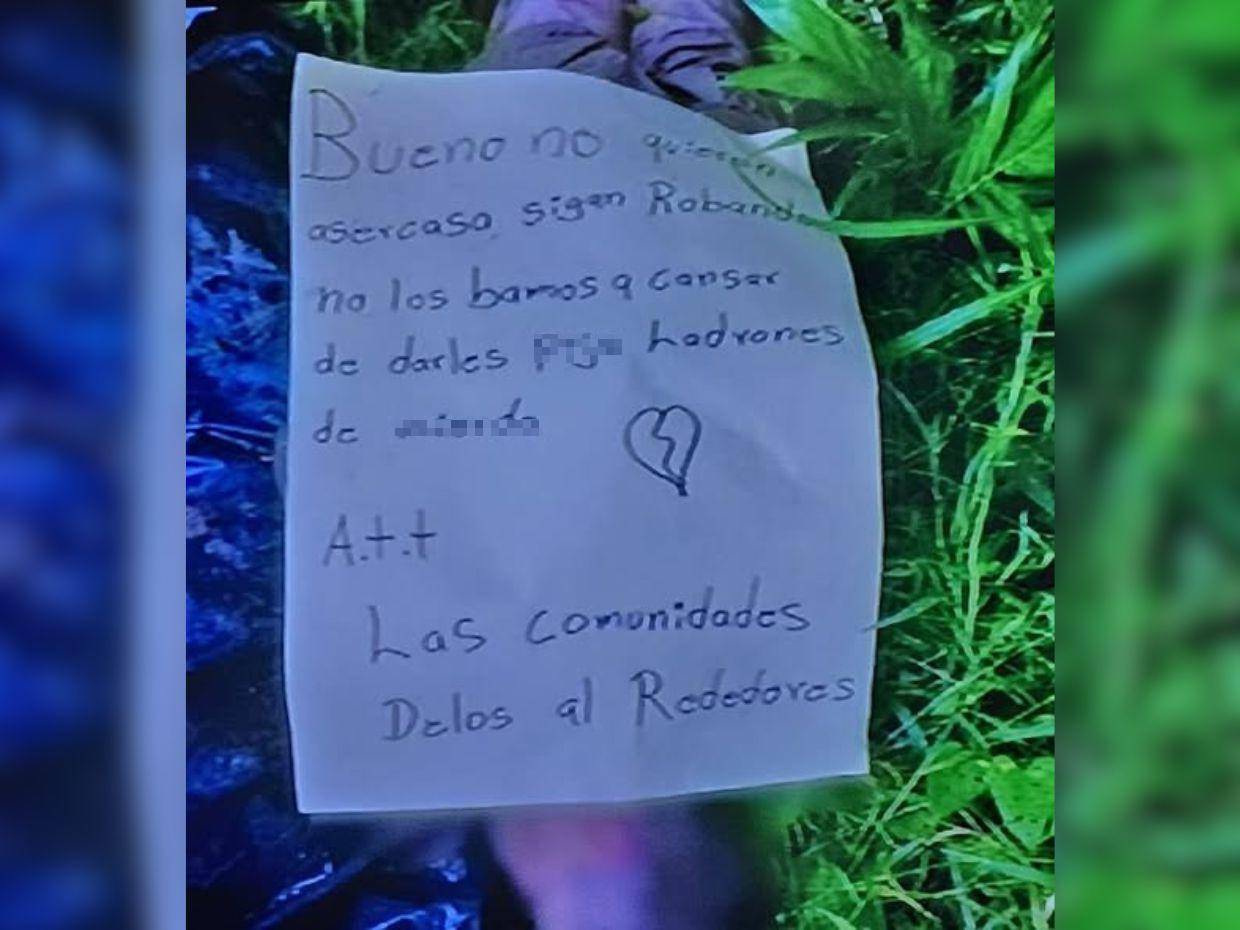 Bueno no quieren
asercaso sigen Robando
no los bamos a cansar
de darles Ladrones
de
A.t.t
Las comunidades
Delos al Rededores